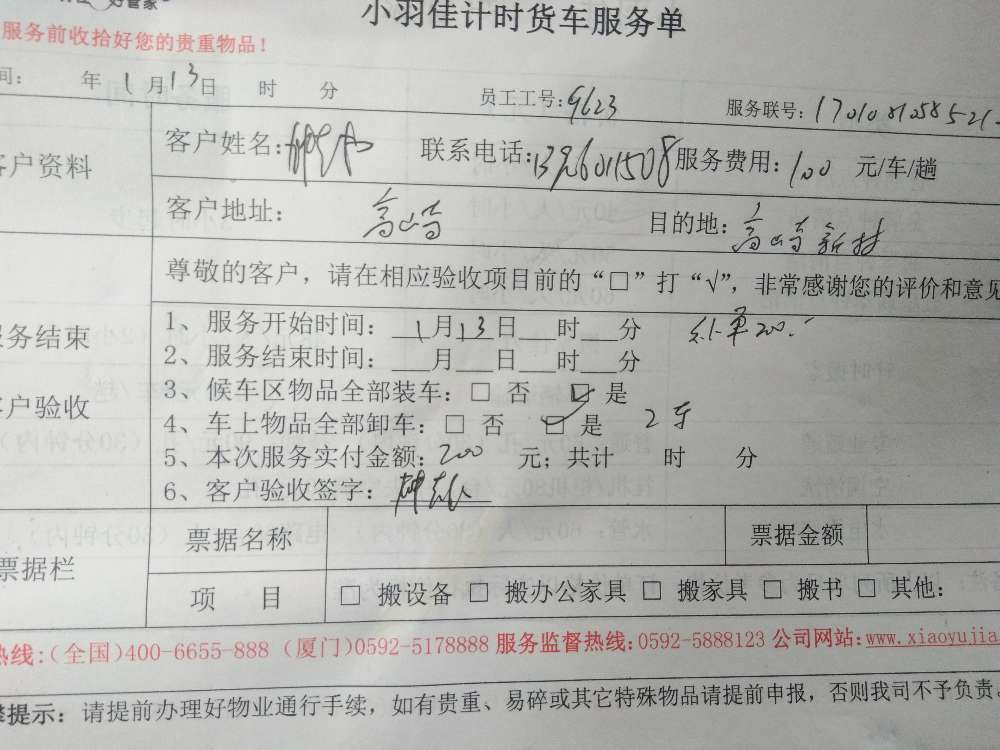 好管家
小羽佳计时货车服务单
服务前收拾好您的贵重物品！
间： 年1月13日 时 分 员工工号：9623 服务联号：
客户资料 客户姓名： 联系电话： 服务费用：100 元/车/趟
客户地址： 高崎 目的地：高崎新村
尊敬的客户，请在相应验收项目前的“□”打“√”，非常感谢您的评价和意见
服务结束
客户验收
1、服务开始时间：1月13日 时 分 200
2、服务结束时间： 月 日 时 分
3、候车区物品全部装车：□ 否 ☑ 是
4、车上物品全部卸车：□ 否 ☑ 是 2车
5、本次服务实付金额：200 元；共计 时 分
6、客户验收签字：
票据栏 票据名称 票据金额
项 目 □ 搬设备 □ 搬办公家具 □ 搬家具 □ 搬书 □ 其他：
热线：（全国）400-6655-888（厦门）0592-5178888 服务监督热线：0592-5888123 公司网站：www.xiaoyujia
提示：请提前办理好物业通行手续，如有贵重、易碎或其它特殊物品请提前申报，否则我司不予负责。